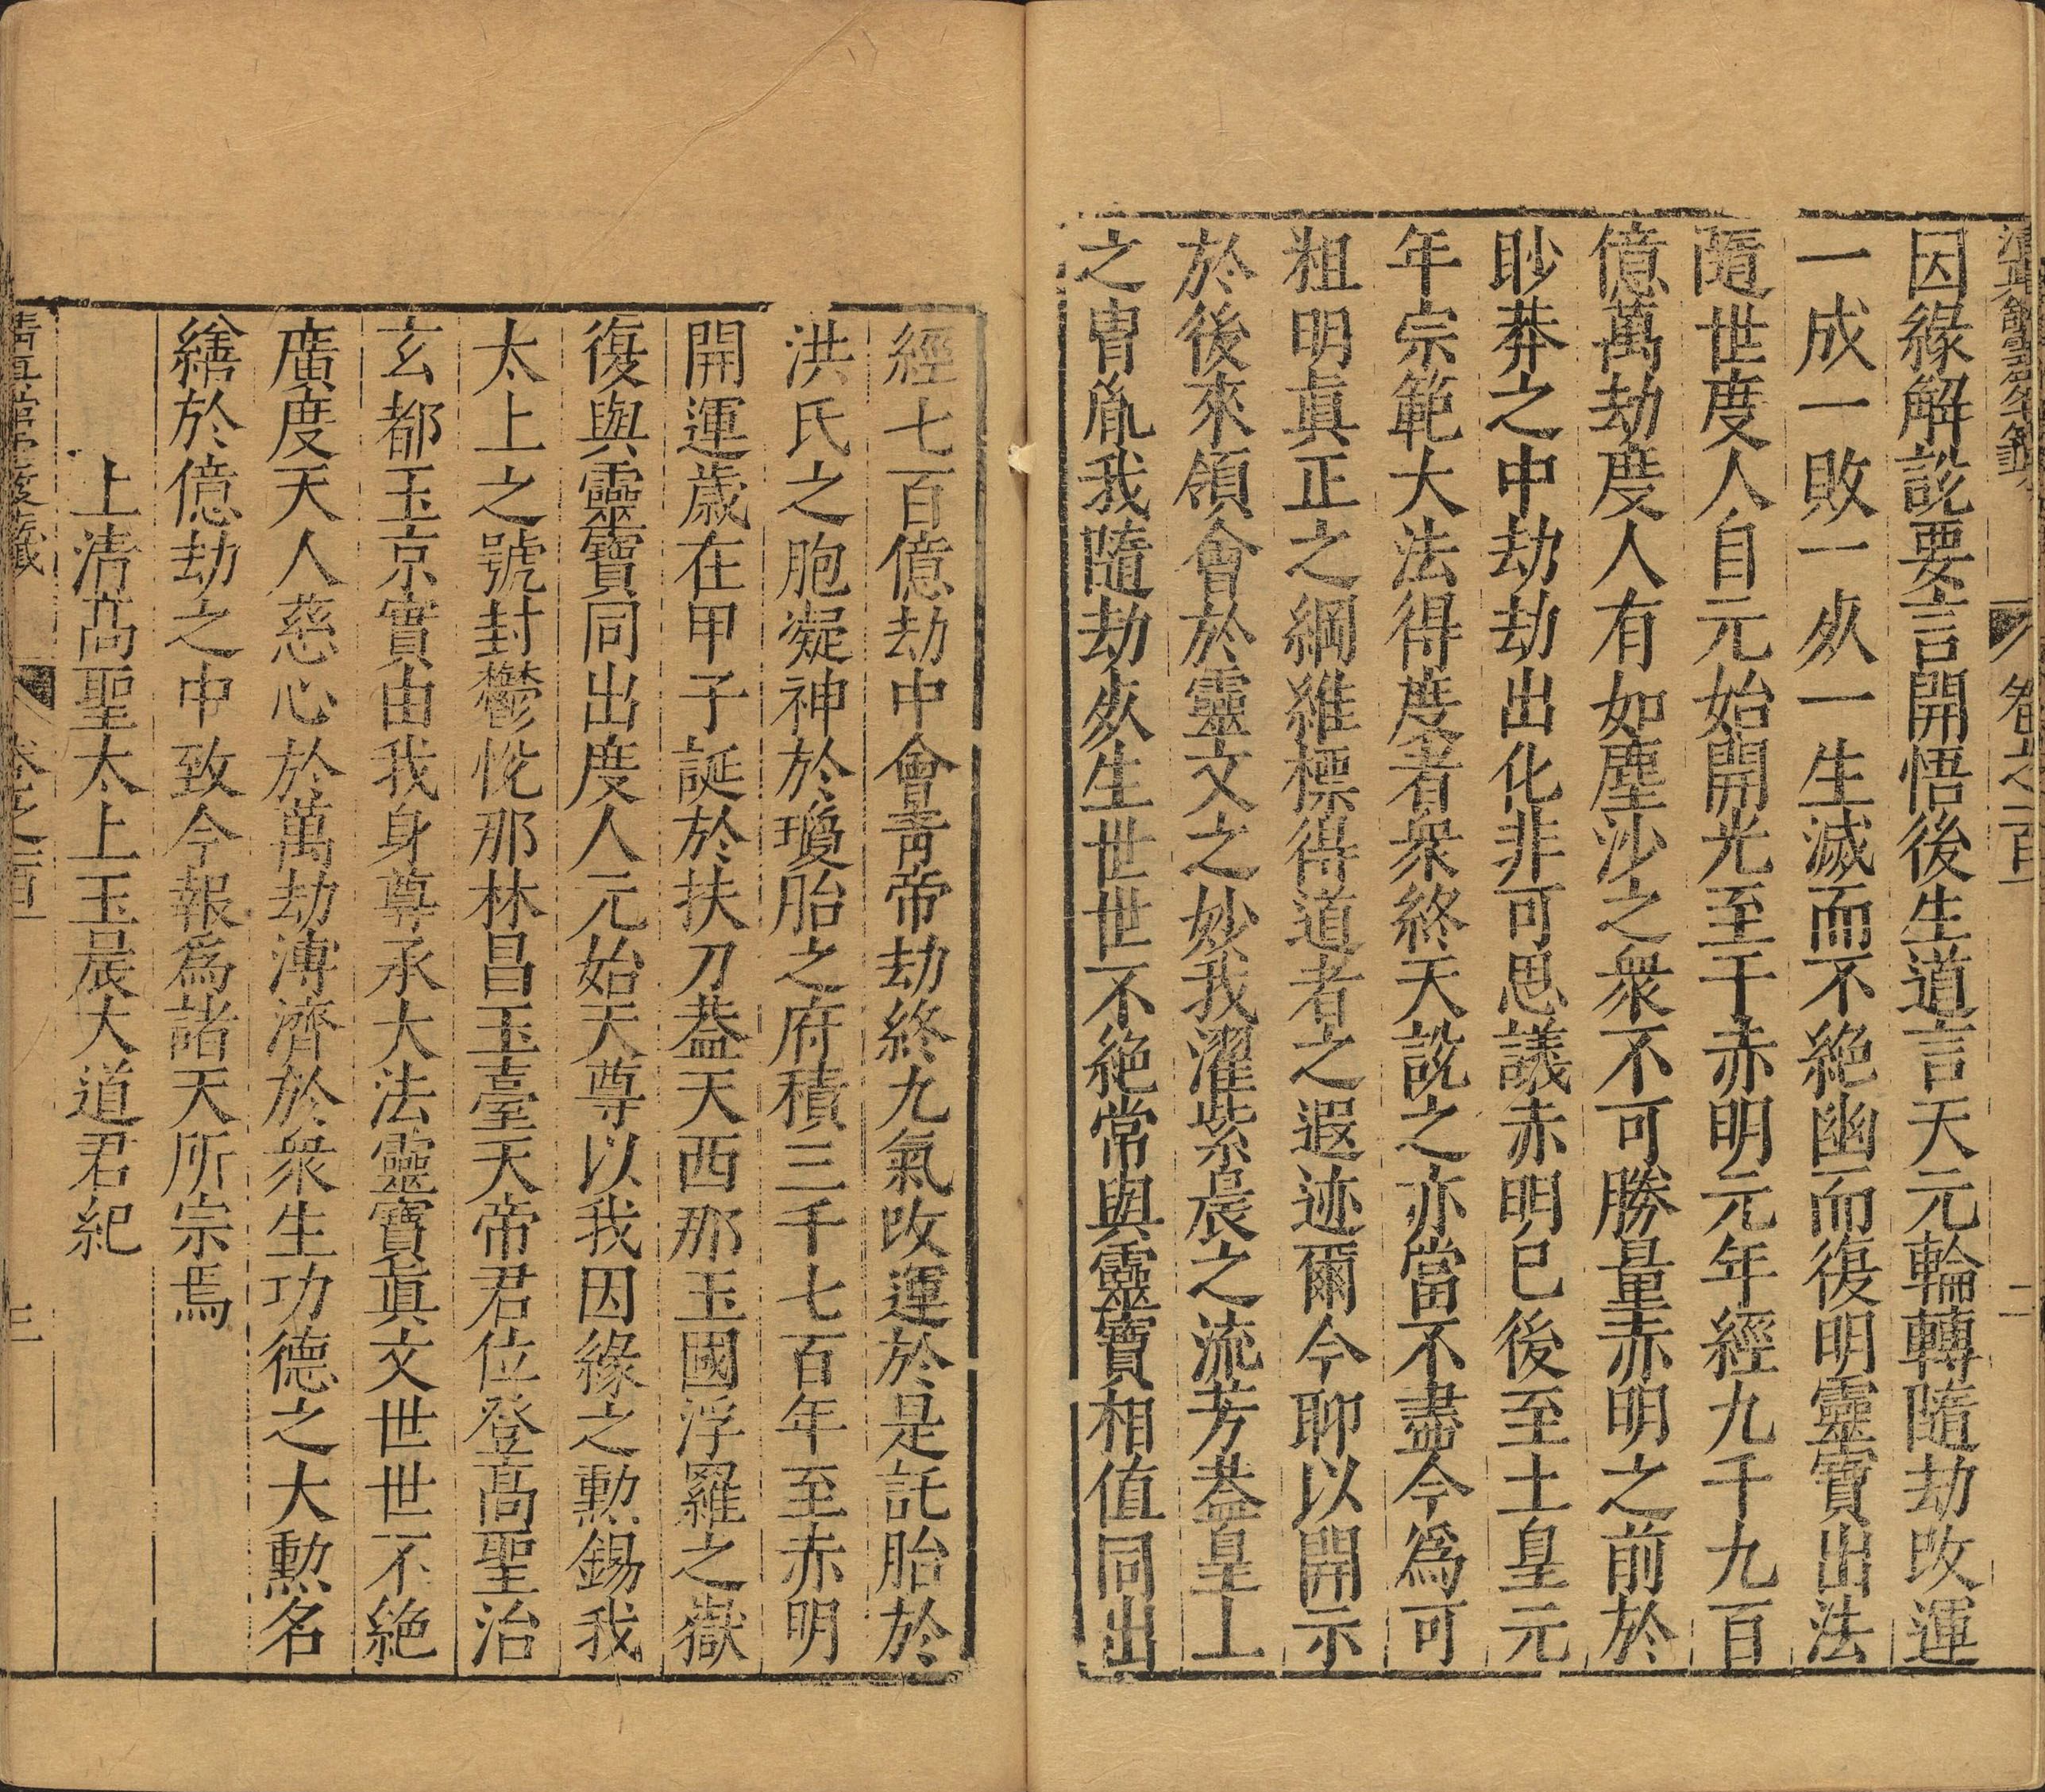 卷之一百 二
因緣解訟要言開悟後生道言天元輪轉隨劫攺運
一成一敗一㱔一生滅而不絶幽而復明靈寶出法
隨世度人自元始開光至于赤明元年經九千九百
億萬劫度人有如塵沙之衆不可勝量赤明之前於
眇莽之中劫劫出化非可思議赤明巳後至土皇元
年宗範大法得度者衆終天說之亦當不盡今爲可
粗明眞正之綱維標得道者之遐迹爾今聊以開示
於後來領會於靈文之妙我濯紫晨之流芳葢皇上
之胄胤我隨劫㱔生世世不絶常與靈寶相值同出
經七百億劫中會靑帝劫終九氣攺運於是託胎於
洪氏之胞凝神於瓊胎之府積三千七百年至赤明
開運歲在甲子誕於扶刀葢天西那玉國浮羅之嶽
復與靈寶同出度人元始天尊以我因緣之勲錫我
太上之號封鬱悅那林昌玉臺天帝君位登高聖治
玄都玉京實由我身尊承大法靈寶眞文世世不絶
廣度天人慈心於萬劫溥濟於衆生功德之大勲名
繕於億劫之中致今報爲諸天所宗焉
上淸高聖太上玉晨大道君紀
卷之一百 三